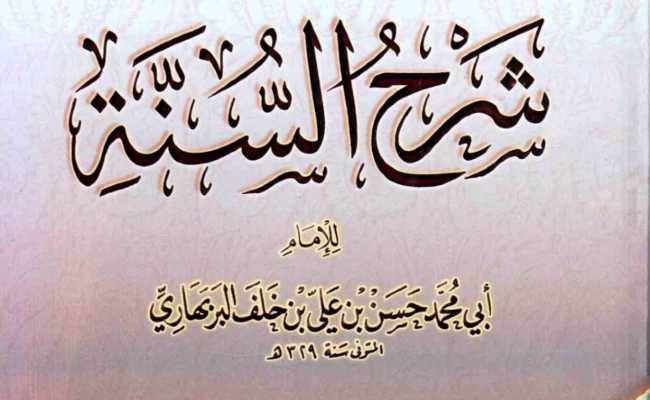 شَرْحُ السُّنَّةِ
لِلْإِمَامِ
أَبِي مُحَمَّد حَسَنْ بْن عَلِيّ بْن خَلَفَ الْبَرْبَهَارِيّ
المتوفى سَنة ٣٢٩ هـ